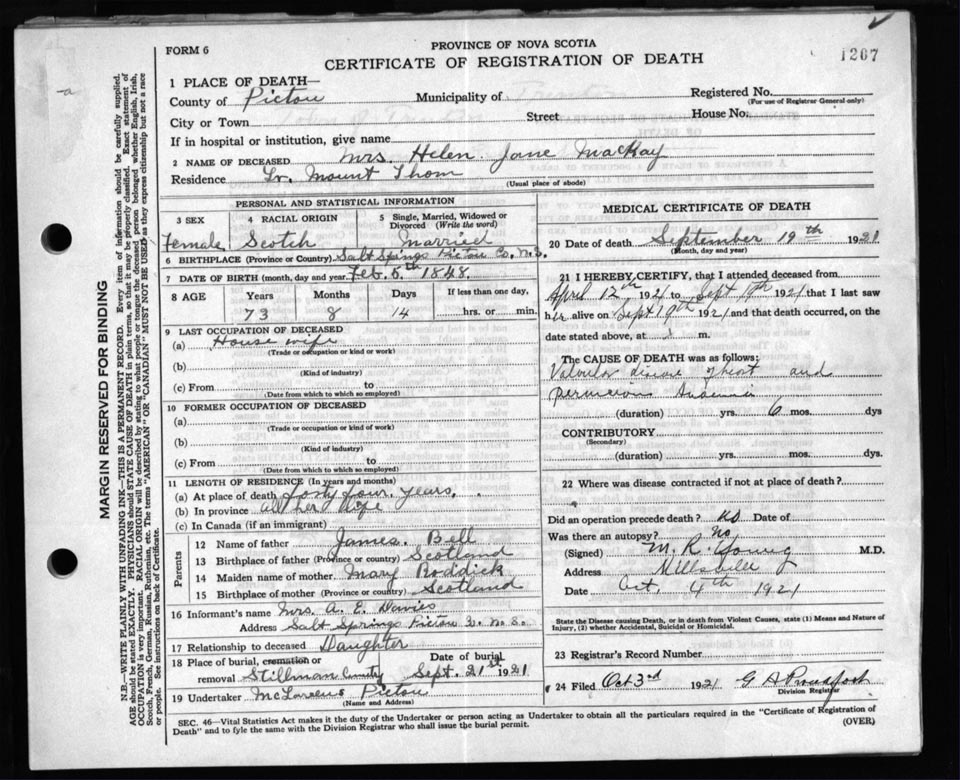 FORM 6
PROVINCE OF NOVA SCOTIA
CERTIFICATE OF REGISTRATION OF DEATH
1267
1 PLACE OF DEATH—
County of Pictou Municipality of
Registered No.
(For use of Registrar General only)
City or Town Street House No.
If in hospital or institution, give name
2 NAME OF DECEASED Mrs. Helen Jane MacKay
Residence Lr. Mount Thom
(Usual place of abode)
PERSONAL AND STATISTICAL INFORMATION
3 SEX 4 RACIAL ORIGIN 5 Single, Married, Widowed or Divorced (Write the word)
Female Scotch Married
6 BIRTHPLACE (Province or Country) Salt Springs Pictou Co. N.S.
7 DATE OF BIRTH (month, day and year) Feb. 5th 1848.
8 AGE Years Months Days If less than one day,
73 8 14 hrs. or min.
9 LAST OCCUPATION OF DECEASED
(a) House wife
(Trade or occupation or kind or work)
(b)
(Kind of industry)
(c) From to
(Date from which to which so employed)
10 FORMER OCCUPATION OF DECEASED
(a)
(Trade or occupation or kind or work)
(b)
(Kind of industry)
(c) From to
(Date from which to which so employed)
11 LENGTH OF RESIDENCE (In years and months)
(a) At place of death forty four years.
(b) In province all her life
(c) In Canada (if an immigrant)
Parents
12 Name of father James. Bell
13 Birthplace of father (Province or country) Scotland
14 Maiden name of mother. Mary Roddick
15 Birthplace of mother (Province or country) Scotland
16 Informant's name Mrs. A. E. Davies
Address Salt Springs Pictou Co. N.S.
17 Relationship to deceased Daughter
18 Place of burial, cremation or removal Stillman County Date of burial Sept. 21st 1921
19 Undertaker McLarens Pictou
(Name and Address)
MEDICAL CERTIFICATE OF DEATH
20 Date of death September 19th 1921
(Month, day and year)
21 I HEREBY CERTIFY, that I attended deceased from
April 12th 1921 to Sept 19th 1921 that I last saw
her alive on Sept 19th 1921 and that death occurred, on the
date stated above, at m.
The CAUSE OF DEATH was as follows:
Valvular disease of heart and
pernicious Anaemia
(duration) yrs. 6 mos. dys
CONTRIBUTORY
(Secondary)
(duration) yrs. mos. dys.
22 Where was disease contracted if not at place of death?
Did an operation precede death? No Date of
Was there an autopsy? No
(Signed) M. R. Young M.D.
Address Millsville
Date Oct. 4th 1921
State the Disease causing Death, or in death from Violent Causes, state (1) Means and Nature of Injury, (2) whether Accidental, Suicidal or Homicidal.
23 Registrar's Record Number
24 Filed Oct 3rd 1921 G A Proudfoot
Division Registrar
SEC. 46—Vital Statistics Act makes it the duty of the Undertaker or person acting as Undertaker to obtain all the particulars required in the "Certificate of Registration of
Death" and to fyle the same with the Division Registrar who shall issue the burial permit.
(OVER)
MARGIN RESERVED FOR BINDING
N.B.—WRITE PLAINLY WITH UNFADING INK—THIS IS A PERMANENT RECORD. Every item of information should be carefully supplied.
AGE should be stated EXACTLY. PHYSICIANS should STATE CAUSE OF DEATH in plain terms, so that it may be properly classified. Exact statement of
OCCUPATION is very important. RACIAL ORIGIN will be described by stating to what people or tongue the deceased person belonged whether English, Irish,
Scotch, French, German, Russian, Ruthenian, etc. The terms "AMERICAN" OR "CANADIAN" MUST NOT BE USED as they express citizenship but not a race
or people. See instructions on back of Certificate.